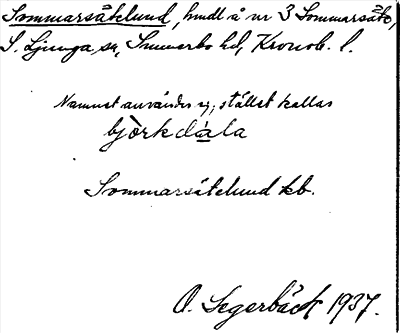 Sommarsätelund, hmdl å nr 3 Sommarsäte,
S. Ljunga sn, Sunnerbo hd, Kronob. l.
Namnet användes ej, stället kallas
björkdala
Sommarsätelund kb.
O. Segerbäck 1937.